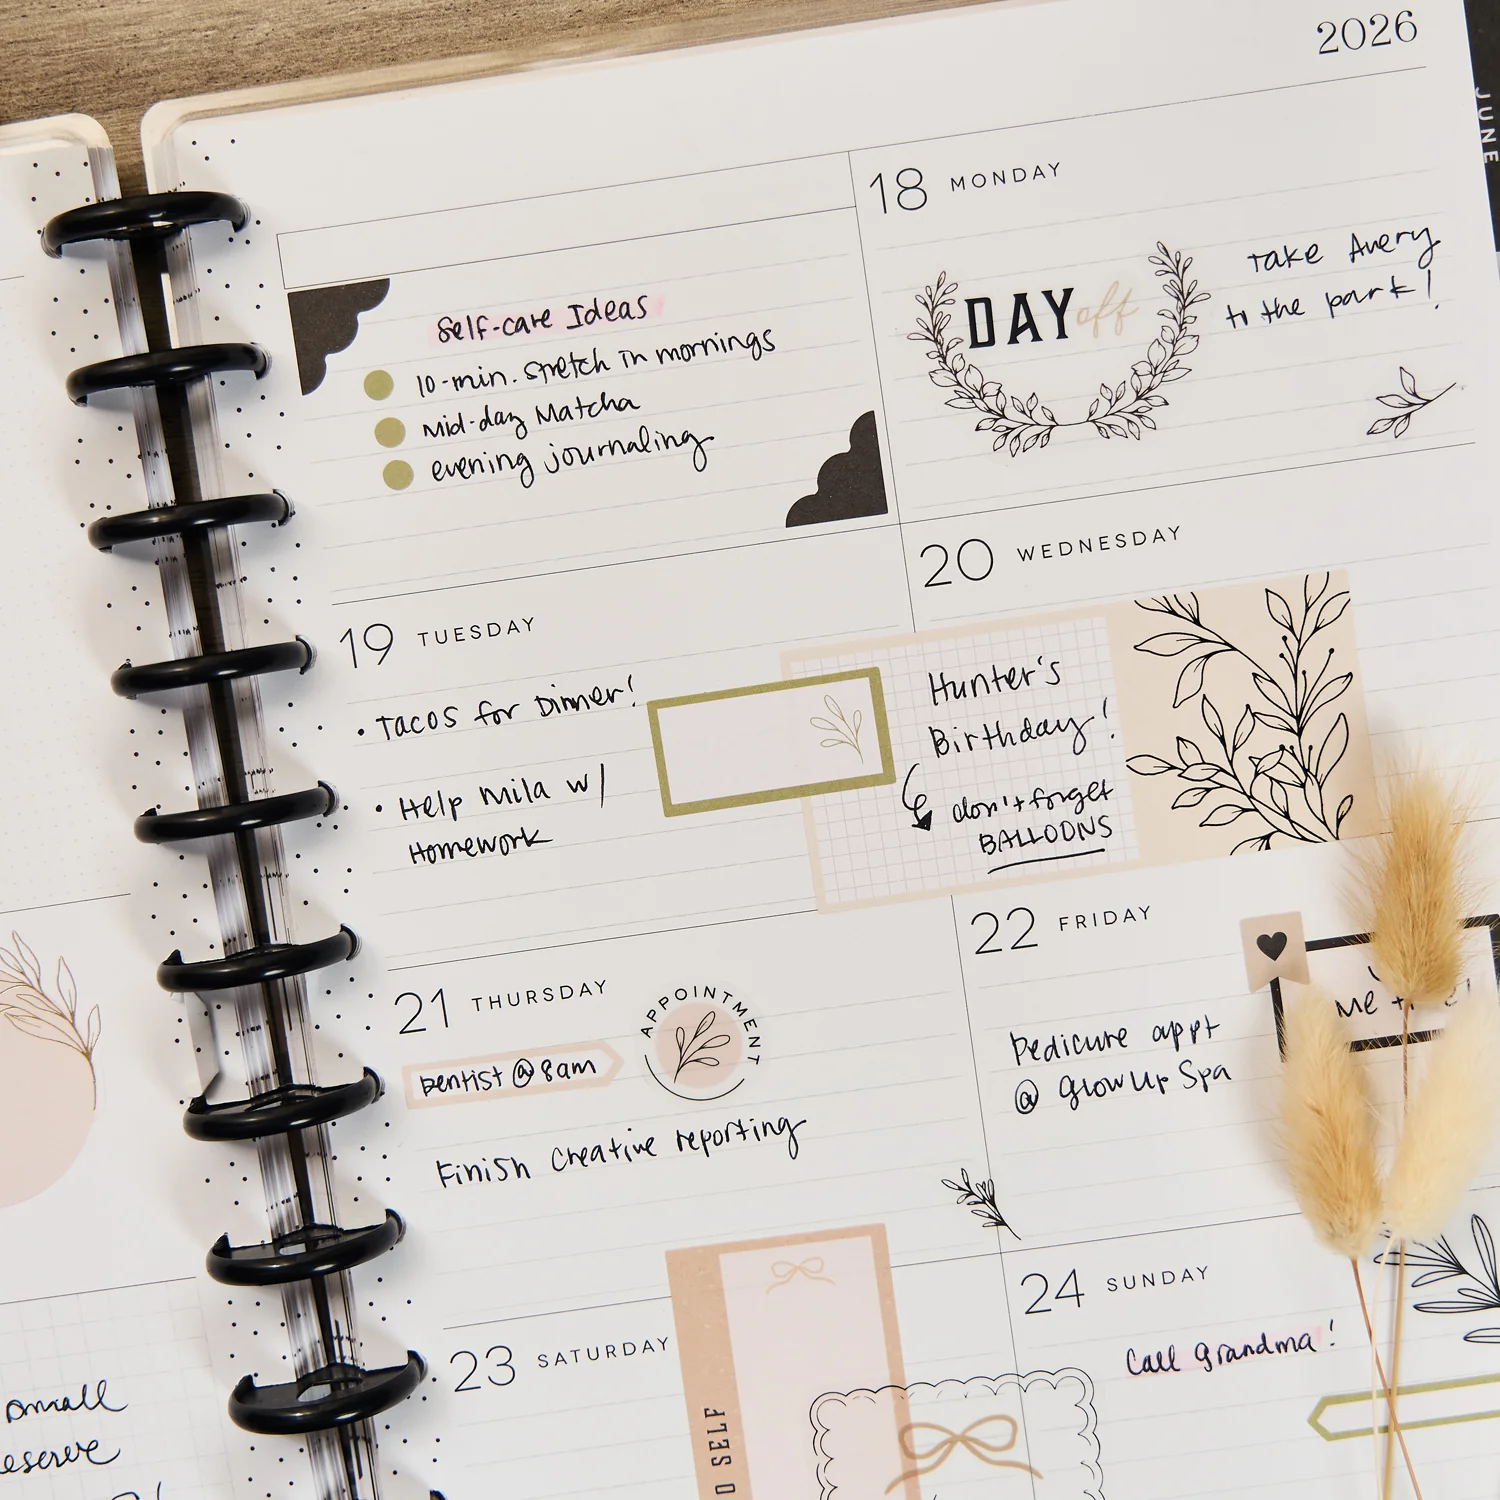 2026
JUNE
Self-care Ideas
10-min. stretch in mornings
mid-day Matcha
evening journaling
18 MONDAY
DAY off
Take Avery
to the park!
19 TUESDAY
• TACOS for Dinner!
• Help Mila w/
Homework
20 WEDNESDAY
Hunter's
Birthday!
don't forget
BALLOONS
21 THURSDAY
APPOINTMENT
Dentist @ 8am
Finish Creative reporting
22 FRIDAY
me
Pedicure appt
@ GlowUp Spa
23 SATURDAY
SELF
24 SUNDAY
Call Grandma!
small